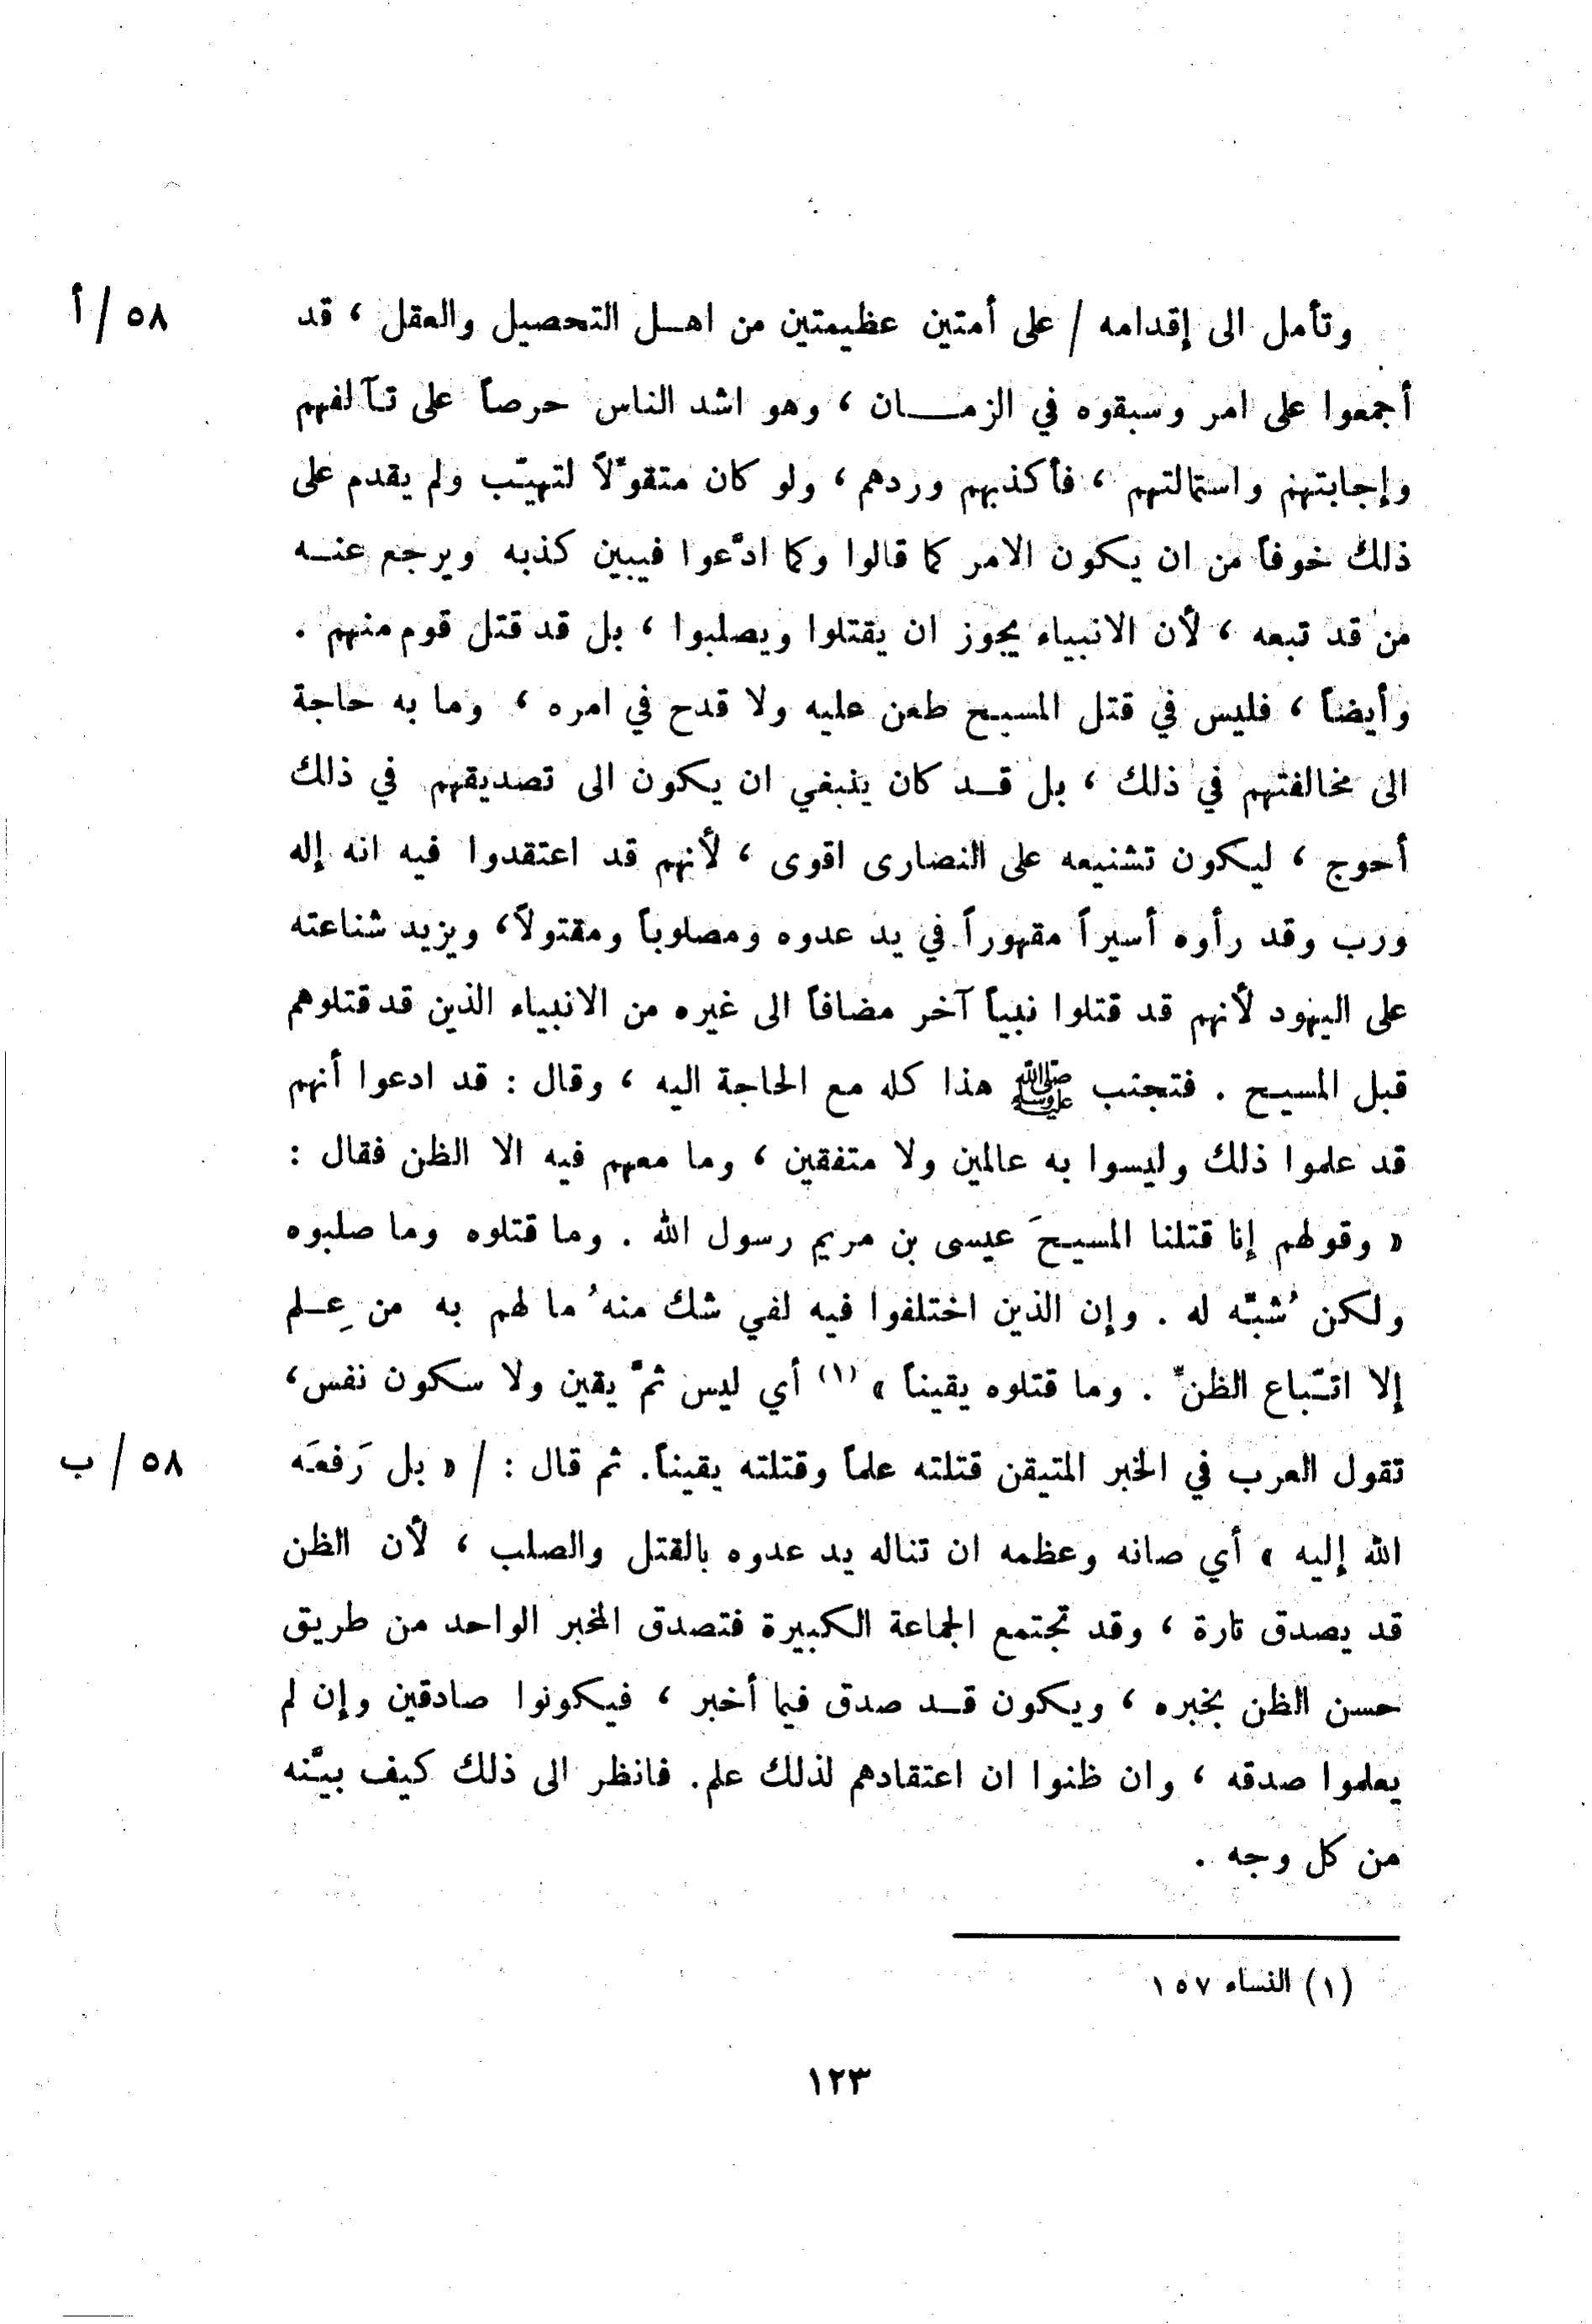 وتأمل الى إقدامه / على أمتين عظيمتين من اهل التحصيل والعقل ، قد ٥٨ / أ
أجمعوا على امر وسبقوه في الزمان ، وهو اشد الناس حرصاً على تآلفهم
وإجابتهم واستمالتهم ، فأكذبهم وردهم ، ولو كان متقوّلاً لتهيّب ولم يقدم على
ذلك خوفاً من ان يكون الامر كما قالوا وكما ادّعوا فيبين كذبه ويرجع عنه
من قد تبعه ، لأن الانبياء يجوز ان يقتلوا ويصلبوا ، بل قد قتل قوم منهم .
وأيضاً ، فليس في قتل المسيح طعن عليه ولا قدح في امره ، وما به حاجة
الى مخالفتهم في ذلك ، بل قد كان ينبغي ان يكون الى تصديقهم في ذلك
أحوج ، ليكون تشنيعه على النصارى اقوى ، لأنهم قد اعتقدوا فيه انه إله
ورب وقد رأوه أسيراً مقهوراً في يد عدوه ومصلوباً ومقتولاً ، ويزيد شناعته
على اليهود لأنهم قد قتلوا نبياً آخر مضافاً الى غيره من الانبياء الذين قد قتلوهم
قبل المسيح . فتجنب ﷺ هذا كله مع الحاجة اليه ، وقال : قد ادعوا أنهم
قد علموا ذلك وليسوا به عالمين ولا متفقين ، وما معهم فيه الا الظن فقال :
« وقولهم إنا قتلنا المسيحَ عيسى بن مريم رسول الله . وما قتلوه وما صلبوه
ولكن شُبّه له . وإن الذين اختلفوا فيه لفي شك منهُ ما لهم به من عِلم
إلا اتّباع الظنّ . وما قتلوه يقيناً » (١) أي ليس ثمّ يقين ولا سكون نفس ،
تقول العرب في الخبر المتيقن قتلته علماً وقتلته يقيناً. ثم قال : / « بل رَفعَه ٥٨ / ب
الله إليه » أي صانه وعظمه ان تناله يد عدوه بالقتل والصلب ، لأن الظن
قد يصدق تارة ، وقد تجتمع الجماعة الكبيرة فتصدق المخبر الواحد من طريق
حسن الظن بخبره ، ويكون قد صدق فيما أخبر ، فيكونوا صادقين وإن لم
يعلموا صدقه ، وان ظنوا ان اعتقادهم لذلك علم. فانظر الى ذلك كيف بيّنه
من كل وجه .
(١) النساء ١٥٧
١٢٣